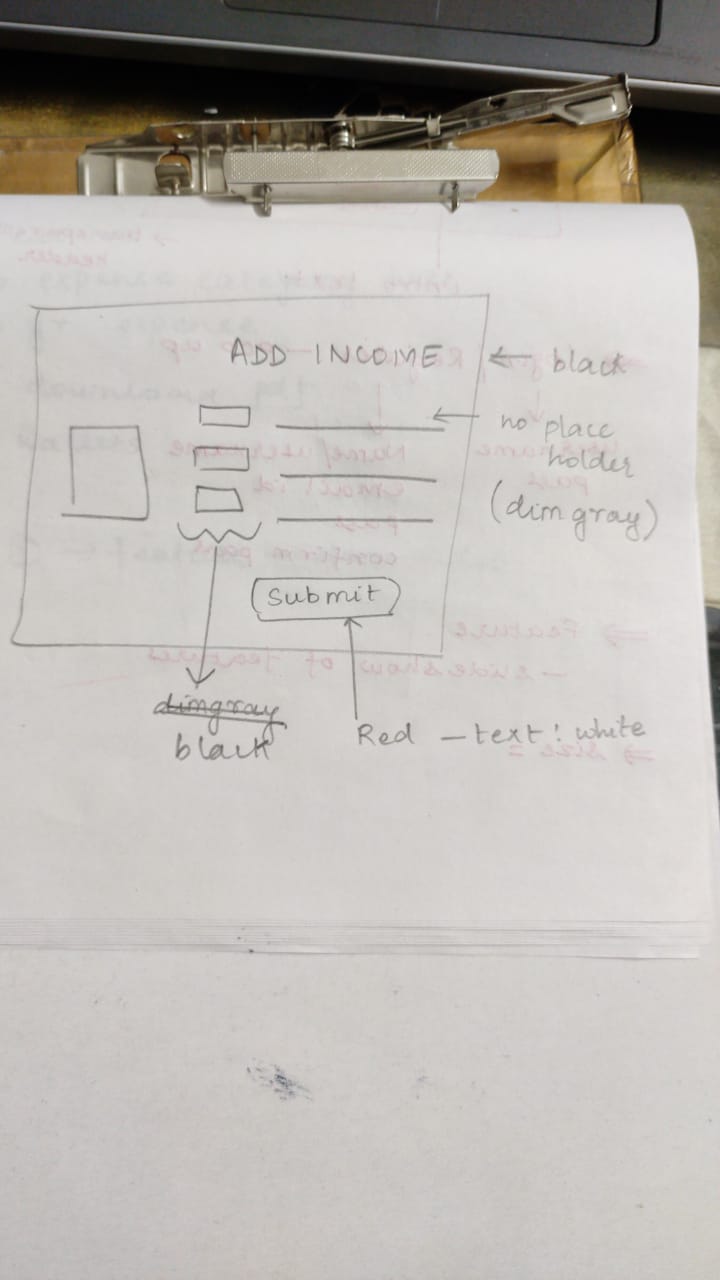 ADD INCOME
← black
← no place
holder
(dim gray)
Submit
dimgray
black
Red – text : white